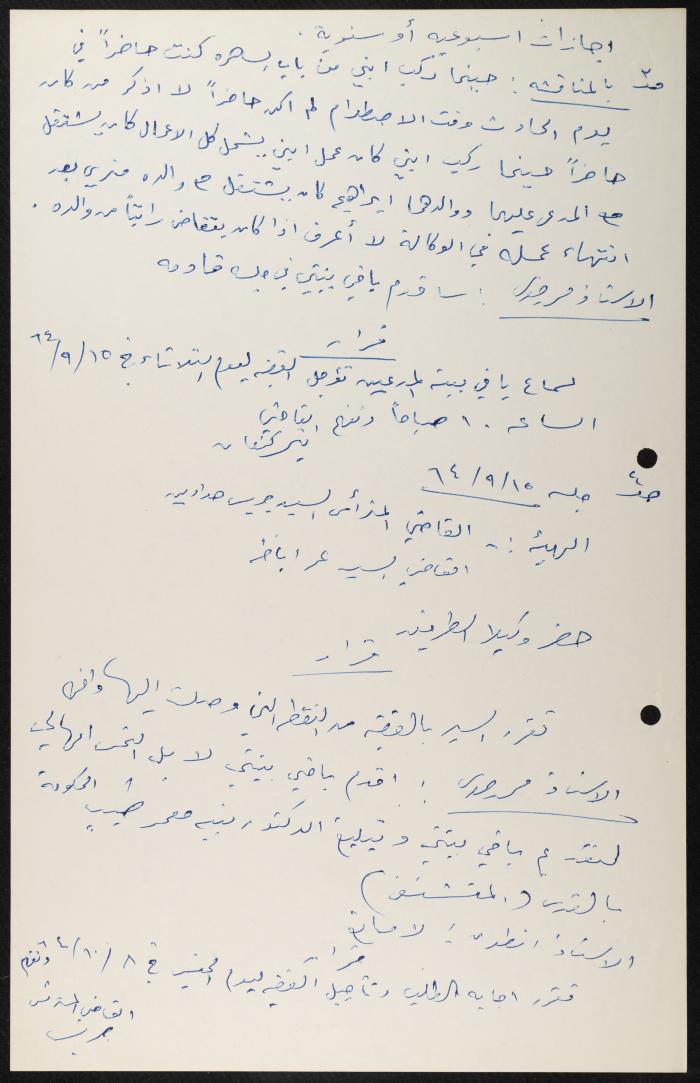 اجازات اسبوعيه أو سنوية .
بالمناقشه : حينما ركب ابني من باب بسهره كنت حاضراً في
يوم الحادث وقت الاصطدام لم اكن حاضراً لا اذكر من كان
حاضراً حينما ركب ابني كان عمل ابني يشمل كل الاعمال كان يشتغل
المدعى عليهما ووالدهما ابراهيم كان يشتغل والده بعد
انتهاء عمله في الوكالة لا أعرف اذا كان يتقاضى راتباً من والده .
الاستاذ : سأقدم باقي بينتي في جلسه قادمه
قرار
لسماع باقي بينة المدعين تؤجل القضيه ليوم الثلاثاء في ٦٤/٩/١٥
الساعه ١٠ صباحاً وتفهم القاضي
جلسه ٦٤/٩/١٥
الهيئه : - القاضي المترأس السيد جريس حدادين
القاضي السيد عمر اباظه
حضر وكيلا الطرفين
قرار
تقرر السير بالقضيه من النقطه التي وصلت اليها وافهم
الاستاذ : اقدم باقي بينتي لا بل التمس امهالي
لتقديم باقي بينتي وتبليغ الدكتور نبيه معمر طبيب الحكومة
بالقدس (المستشفى)
الاستاذ انطون : لا مانع
قرار
تقرر اجابه الطلب وتأجيل القضيه ليوم الخميس في ٦٤/١٠/٨ وتفهم
القاضي المترئس
جريس